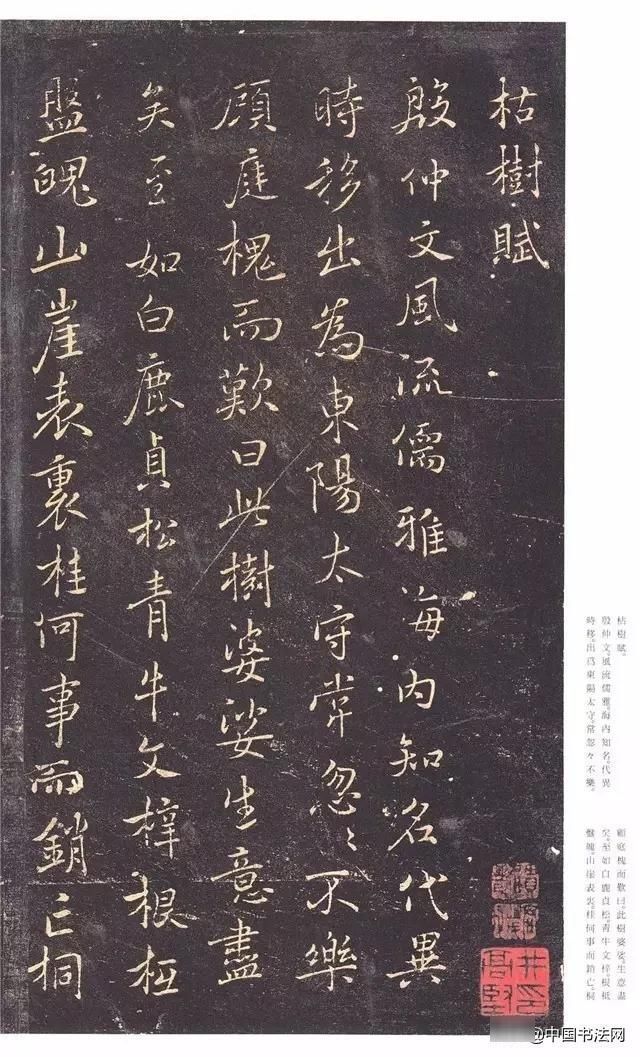 枯樹賦
殷仲文風流儒雅海内知名代異
時移出為東陽太守常忽〻不樂
顧庭槐而歎曰此樹婆娑生意盡
矣至如白鹿貞松青牛文梓根柢
盤魄山崖表裏桂何事而銷亡桐
枯樹賦。
殷仲文。風流儒雅。海内知名。代異
時移。出爲東陽太守。常忽々不樂。
顧庭槐而歎曰。此樹婆娑。生意盡
矣。至如白鹿貞松。青牛文梓。根柢
盤魄。山崖表裏。桂何事而銷亡。桐
@中国书法网